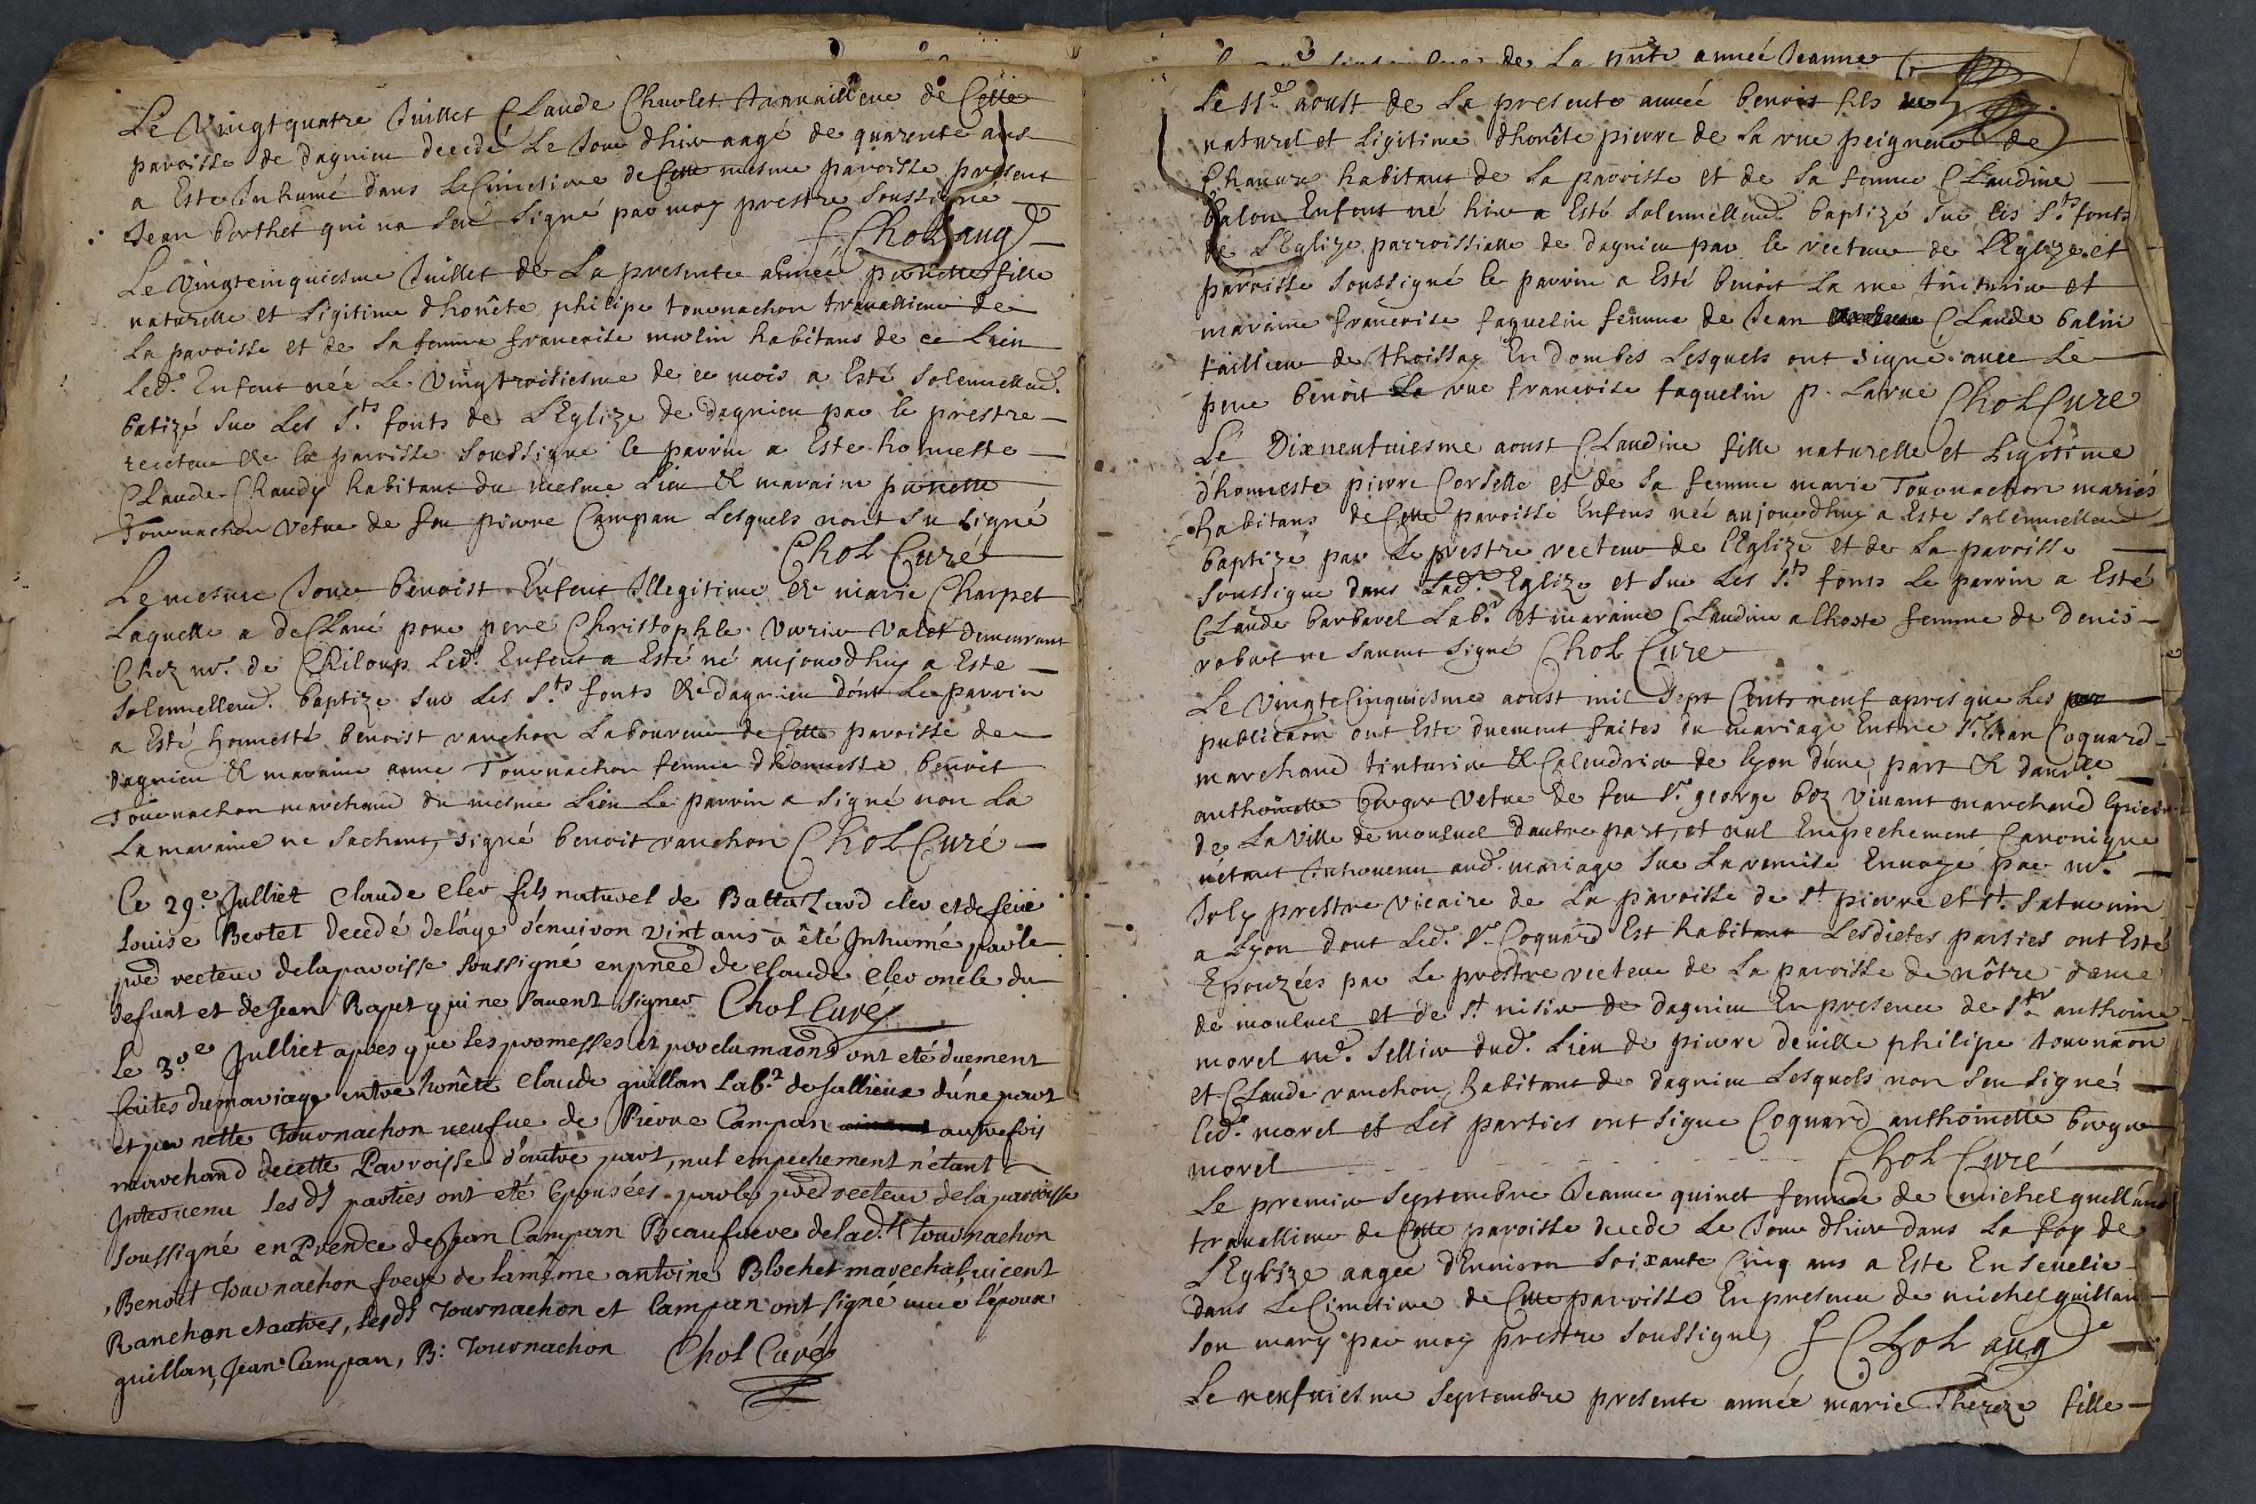 Le Vingtquatre Juillet Claude Chuvlet travaillieur de Cette
paroisse de dagnieu decedé le Jour dhier aagé de quarente ans
a Este Inhumé dans le Cimetiere de Cette mesme paroisse present
Jean berthet qui na seu signé par moy prestre soussigné
f. Chol aug
Le Vingtcinquiesme Juillet de La presente année pernette fille
naturelle et ligitime dhonête philipe tournachon travallieur de
la paroisse et de sa femme francoise merlin habitans de ce Lieu
led. Enfent née le vingtroisiesme de ce mois a Esté solennellemt.
batizé sur les Sts. fonts de L'Eglize de Dagnieu par le prestre
recteur de la parrisse soussigné le parrin a Este honneste
Claude Chaudy habitant du mesme Lieu & maraine pernette
Tournachon vefue de feu pierre Campan lesquels nont su signé
Chol Curé
Le mesme Jour benoist Enfent Illegitime de marie Charpet
Laquelle a declaré pour pere Christophle verrier valet demeurant
Chez mr. de Chiloup led. Enfent a Esté né aujourdhuy a Este
solennellemt. baptize sur les Sts. fonts de dagnieu dont le parrin
a Esté honnesté benoist ranchon laboureur de Cette paroisse de
dagnieu & maraine anne Tournachon femme dhonneste benoit
Tournachon marchand du mesme Lieu Le parrin a signé non La
La maraine ne sachant signé benoit ranchon Chol Curé
Ce 29.e Julliet Claude Cler fils naturel de Baltazard cler et de feüe
Louise Bertet decedé delâge dénuiron vint ans a êté Inhumé par le
pre recteur delaparoisse soussigné en pnce de claude cler oncle du
defunt et de Jean Rapet qui ne sauent signer Chol Curé
Le 30.e Julliet apres que les promesses et proclamaons ont eté duement
faites du mariage entre honête Claude guillan lab.r de Jallieux dúne part
et pernette Tournachon ueufue de Pierre Campan autrefois
marchand decette Parroisse d'autre part, nul empechement n'étant
Interuenu lesds parties ont eté Epousées par le pre recteur dela parroisse
soussigné en Prence de Jean Campan Beaufrere delad.te Tournachon
Benoit Tournachon frere de lamême antoine Blochet marechal, uicent
Ranchon et autres, lesds Tournachon et Campan ont signé auec l'époux
guillan, Jean Campan, B: Tournachon Chol Curé
de La pnte année Jeanne
Le 11e aoust de la presente année benoit fils
naturel et ligitime dhonête pierre de la rue peigneur de
Chanure habitant de la paroisse et de sa femme Claudine
balon Enfent né hier a Esté solennellemt. baptizé sur les Sts. fonts
de L'Eglize parroissialle de dagnieu par le recteur de L'Eglize et
paroisse soussigné le parrin a Esté benoit La rue tinturier et
maraine francoise faquelin femme de Jean Claude balin
taillieur de thoissay En dombes lesquels ont signé auec Le
pere benoit La rue francoise faquelin p. Larue Chol Cure
Le Dixneufuiesme aoust Claudine fille naturelle et Ligitime
d'honneste pierre Corselle et de sa femme marie Tournachon mariés
habitans de Cette paroisse Enfens née aujourdhuy a Este salennellemt
baptizé par Le prestre recteur de l'Eglize et de La paroisse
soussigne dans Lad. Eglize et sur Les Sts fonts Le parrin a Esté
Claude barbarel Labr. et maraine Claudine alhoste femme de denis
robart ne sauent signé Chol Cure
Le Vingtecinquiesme aoust mil sept Cents neuf apres que Les
publicaon ont Este duement faites du mariage Entre Sr. Jean Coquard
marchand tinturier & Calendrier de lyon dúne part & damlle
anthoinette Berger vefue de feu Sr. george boz viuant marchand Epicier
de La Ville de mouluel dautre part, et nul Empechement Canonique
nétant Interuenu aud. mariage sur La remise Enuoyé par mr.
Joly prestre vicaire de La paroisse de St pierre et St. saturnin
a Lyon dont Led. Sr. Coquard Est habitant Lesdictes parties ont Esté
Epouzées par Le prestre recteur de La paroisse de nôtre dame
de mouluel et de St nisier de dagnieu En presence de Sr. anthoine
morel md. sellier dud. Lieu de pierre deuille philipe tournaon
et Claude ranchon habitant de dagnieu Lesquels non seu signé
led. morel et Les parties ont signe Coquard anthoinette berger
morel Chol Curé
Le premier septembre Jeanne quinet femme de michel guilland
travallieur de Cette paroisse decede le Jour dhier dans La foy de
L'Eglize aagee d'Enuiron soixante Cinq ans a Este Enseuelie
dans Le Cimetiere de Cette parroisse En presence de michel guillan
son mary par moy prestre soussigné, f Chol aug
Le neufuiesme septembre presente année marie Thereze fille